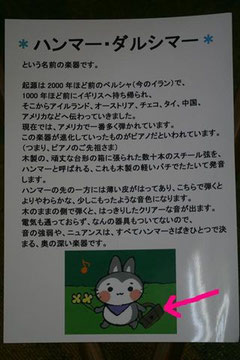 ＊ハンマー・ダルシマー＊
という名前の楽器です。
起源は2000年ほど前のペルシャ（今のイラン）で、
1000年ほど前にイギリスへ持ち帰られ、
そこからアイルランド、オーストリア、チェコ、タイ、中国、
アメリカなどへ伝わっていきました。
現在では、アメリカで一番多く弾かれています。
この楽器が進化していったものがピアノだといわれています。
（つまり、ピアノのご先祖さま）
木製の、頑丈な台形の箱に張られた数十本のスチール弦を、
ハンマーと呼ばれる、これも木製の軽いバチでたたいて発音
します。
ハンマーの先の一方には薄い皮がはってあり、こちらで弾くと
よりやわらかな、少しこもったような音色になります。
木のままの側で弾くと、はっきりしたクリアーな音が出ます。
電気も通っておらず、なんの器具もついてないので、
音の強弱や、ニュアンスは、すべてハンマーさばきひとつで決
まる、奥の深い楽器です。